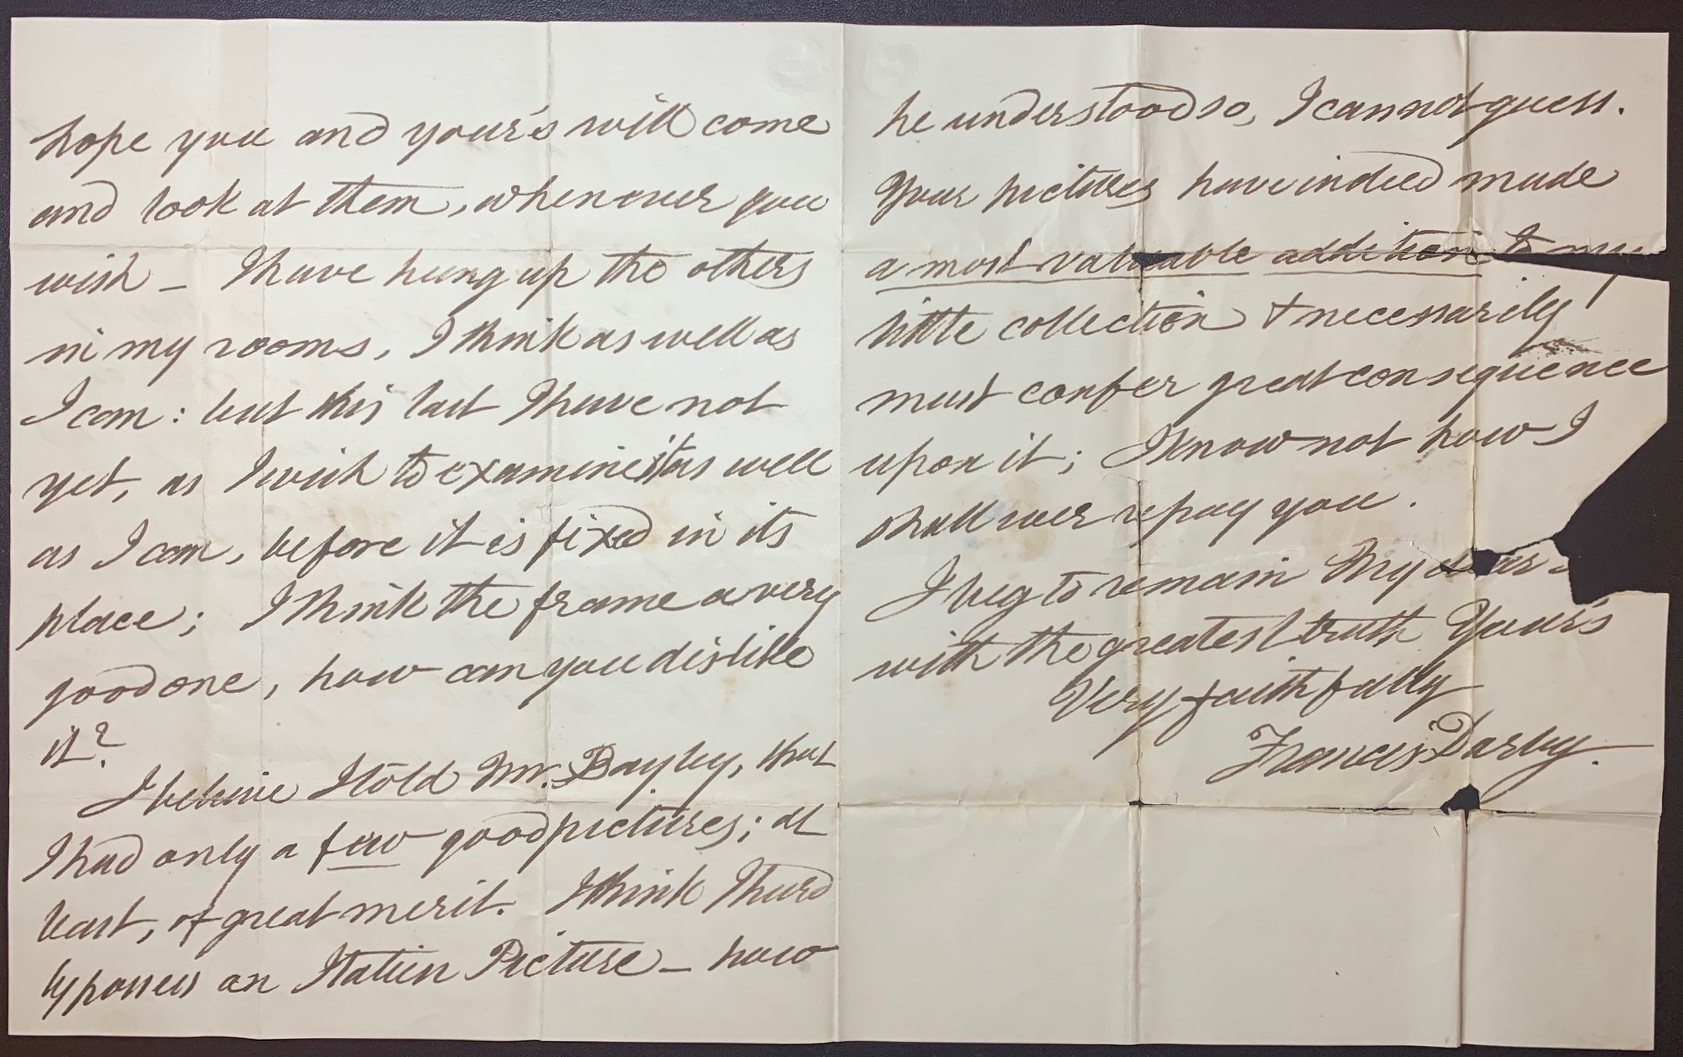 hope you and your's will come
and look at them, whenever you
wish – I have hung up the others
in my rooms, I think as well as
I can: but this last I have not
yet, as I wish to examine it as well
as I can, before it is fixed in its
place; I think the frame a very
good one, how can you dislike
it?
I believe I told Mr. Bayley, that
I had only a few good pictures; at
least, of great merit. I think I hard
ly possess an Italien Picture – how
he understood so, I cannot guess.
Your pictures have indeed made
a most valuable addition to my
little collection & necessarily
must confer great consequence
upon it; I know not how I
shall ever repay you.
I beg to remain My dear
with the greatest truth Your's
Very faithfully
Francis Darby.